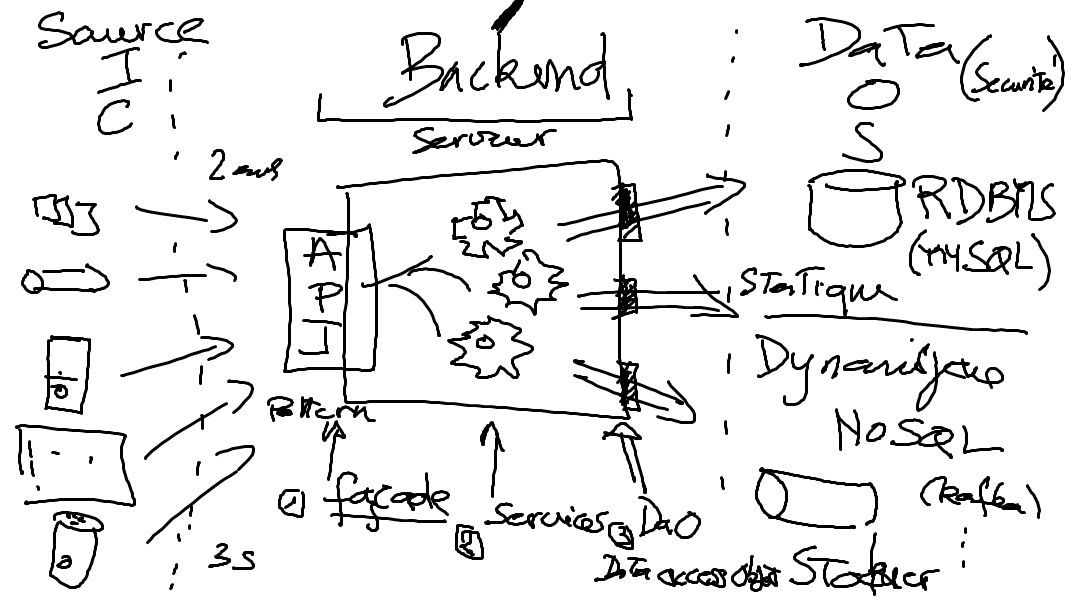 Source
I
C
3s
Backend
Serveur
A
P
I
Pattern
1 façade
2 Services
3 DaO
Data access object
DaTa
(Securité)
O
S
RDBMS
(MYSQL)
STaTique
Dynamique
NoSQL
(Kafka)
STocker